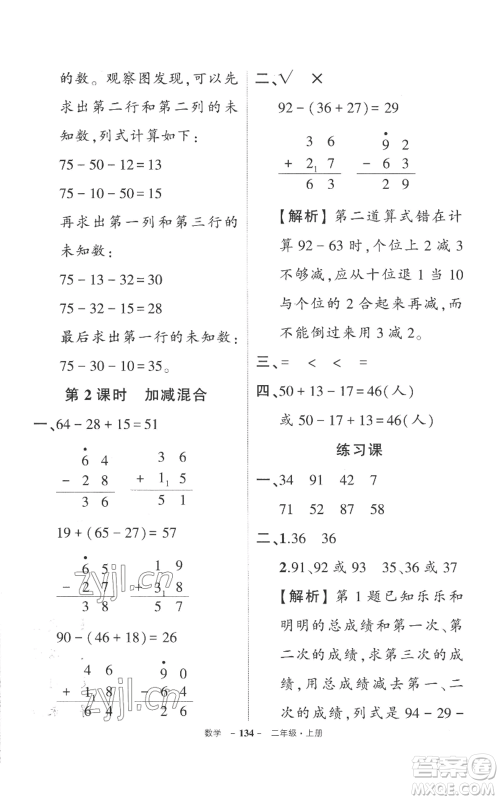 的数。观察图发现,可以先
求出第二行和第二列的未
知数,列式计算如下:
75-50-12=13
75-10-50=15
再求出第一列和第三行的
未知数:
75-13-32=30
75-32-15=28
最后求出第一行的未知数:
75-30-10=35。
第2课时 加减混合
一、64-28+15=51
6 4
- 2 8
3 6
3 6
+ 1 1 5
5 1
19+(65-27)=57
6 5
- 2 7
3 8
1 9
+ 3 1 8
5 7
90-(46+18)=26
4 6
+ 1 1 8
6 4
9 0
- 6 4
2 6
二、√ ×
92-(36+27)=29
3 6
+ 2 1 7
6 3
9 2
- 6 3
2 9
【解析】第二道算式错在计
算92-63时,个位上2减3
不够减,应从十位退1当10
与个位的2合起来再减3,
而不是用3减2。
三、= < < =
四、50+13-17=46(人)
或50-17+13=46(人)
练习课
一、34 91 42 7
81 72 87 58
二、1.36 36
2.91、92或93 35、36或37
【解析】第1题已知乐乐和
明明的总成绩和第一次、
第二次的成绩,求第三次的
成绩,用总成绩减去第一、二
次的成绩,列式是94-29-
数学 -134- 二年级·上册
zyjl.cn
zyjl.cn
作业帮理